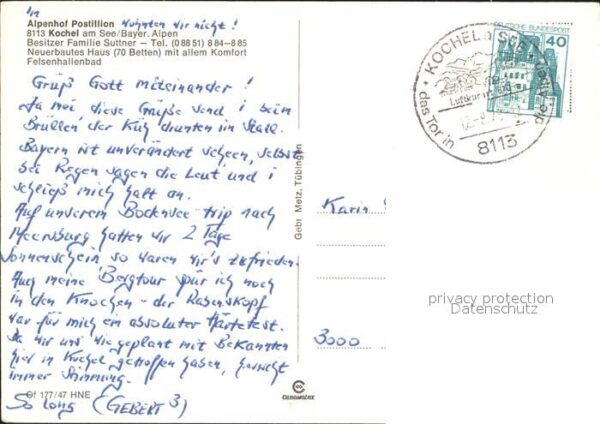 in
Alpenhof Postillion wohnten wir nicht!
8113 Kochel am See/Bayer. Alpen
Besitzer Familie Suttner — Tel. (0 88 51) 8 84–8 85
Neuerbautes Haus (70 Betten) mit allem Komfort
Felsenhallenbad
Grüß Gott miteinander!
Ja mei diese Grüße send i beim
Brüllen der Küh drunten im Stall.
Bayern ist unverändert scheen, selbst
bei Regen sagen die Leut und i
schließ mich halt an.
Auf unserem Bodensee-trip nach
Meersburg hatten wir 2 Tage
Sonnenschein so waren wir's zufrieden.
Auch meine Bergtour spür ich noch
in den Knochen - der Rabenskopf
war für mich ein absoluter Härtetest.
Da wir uns wie geplant mit Bekannten
hier in Kochel getroffen haben, herrscht
immer Stimmung.
Of 177/47 HNE
So long (GEBERT 3)
Gebr. Metz, Tübingen
Cekumatex
DEUTSCHE BUNDESPOST
40
KOCHEL a. SEE
Luftkurort
das Tor in
8113
Karin
3000
privacy protection
Datenschutz